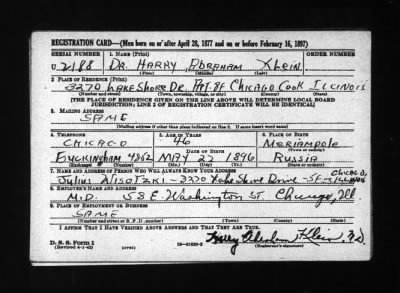 REGISTRATION CARD—(Men born on or after April 28, 1877 and on or before February 16, 1897)
SERIAL NUMBER 1. NAME (Print) ORDER NUMBER
U 2188 DR. HARRY ABRAHAM KLEIN
(First) (Middle) (Last)
2. PLACE OF RESIDENCE (Print)
3270 LAKE SHORE DR. CHICAGO COOK ILLINOIS
(Number and street) (Town, township, village, or city) (County) (State)
[THE PLACE OF RESIDENCE GIVEN ON THE LINE ABOVE WILL DETERMINE LOCAL BOARD
JURISDICTION; LINE 2 OF REGISTRATION CERTIFICATE WILL BE IDENTICAL]
3. MAILING ADDRESS
SAME
[Mailing address if other than place indicated on line 2. If same insert word same]
4. TELEPHONE 5. AGE IN YEARS 6. PLACE OF BIRTH
CHICAGO 46 MERIAMPOLE
DATE OF BIRTH (Town or county)
BUCKINGHAM 4862 MAY 27 1896 RUSSIA
(Exchange) (Number) (Mo.) (Day) (Yr.) (State or country)
7. NAME AND ADDRESS OF PERSON WHO WILL ALWAYS KNOW YOUR ADDRESS CHICAGO,
Julius 3270 Lake Shore Drive ILLINOIS
8. EMPLOYER'S NAME AND ADDRESS
M.D. 58 E. Washington St. Chicago, Ill.
9. PLACE OF EMPLOYMENT OR BUSINESS
SAME
(Number and street or R. F. D. number) (Town) (County) (State)
I AFFIRM THAT I HAVE VERIFIED ABOVE ANSWERS AND THAT THEY ARE TRUE.
D. S. S. Form 1 Harry Abraham Klein, M.D.
(Revised 4-1-42) (over) (Registrant's signature)